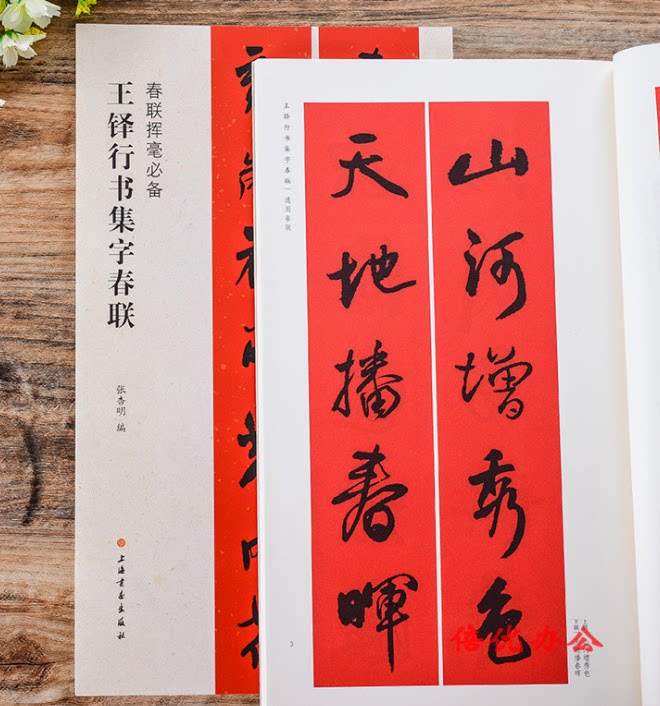 春联挥毫必备
王铎行书集字春联
张杏明 编
上海书画出版社
山河增秀色
天地播春暉
王铎行书集字春联｜通用春联
3
增秀色
播春晖
办公